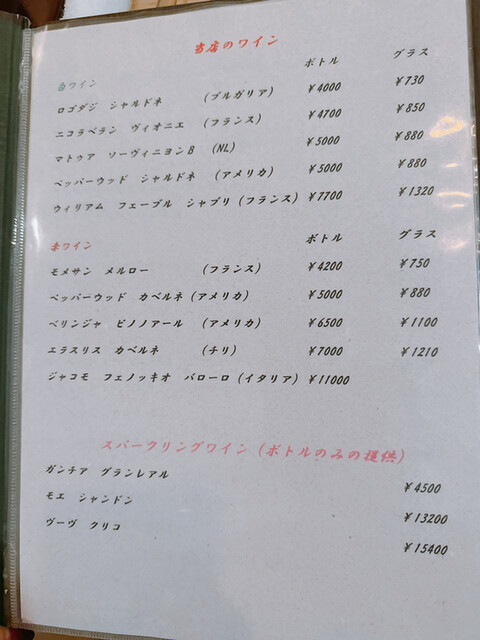 当店のワイン
白ワイン ボトル グラス
ロゴダジ シャルドネ (ブルガリア) ¥4000 ¥730
ニコラベラン ヴィオニエ (フランス) ¥4700 ¥850
マトゥア ソーヴィニヨンB (NL) ¥5000 ¥880
ペッパーウッド シャルドネ (アメリカ) ¥5000 ¥880
ウィリアム フェーブル シャブリ (フランス) ¥7700 ¥1320
赤ワイン ボトル グラス
モメサン メルロー (フランス) ¥4200 ¥750
ペッパーウッド カベルネ (アメリカ) ¥5000 ¥880
ベリンジャ ピノノアール (アメリカ) ¥6500 ¥1100
エラスリス カベルネ (チリ) ¥7000 ¥1210
ジャコモ フェノッキオ バローロ (イタリア) ¥11000
スパークリングワイン (ボトルのみの提供)
ガンチア グランレアル ¥4500
モエ シャンドン ¥13200
ヴーヴ クリコ ¥15400